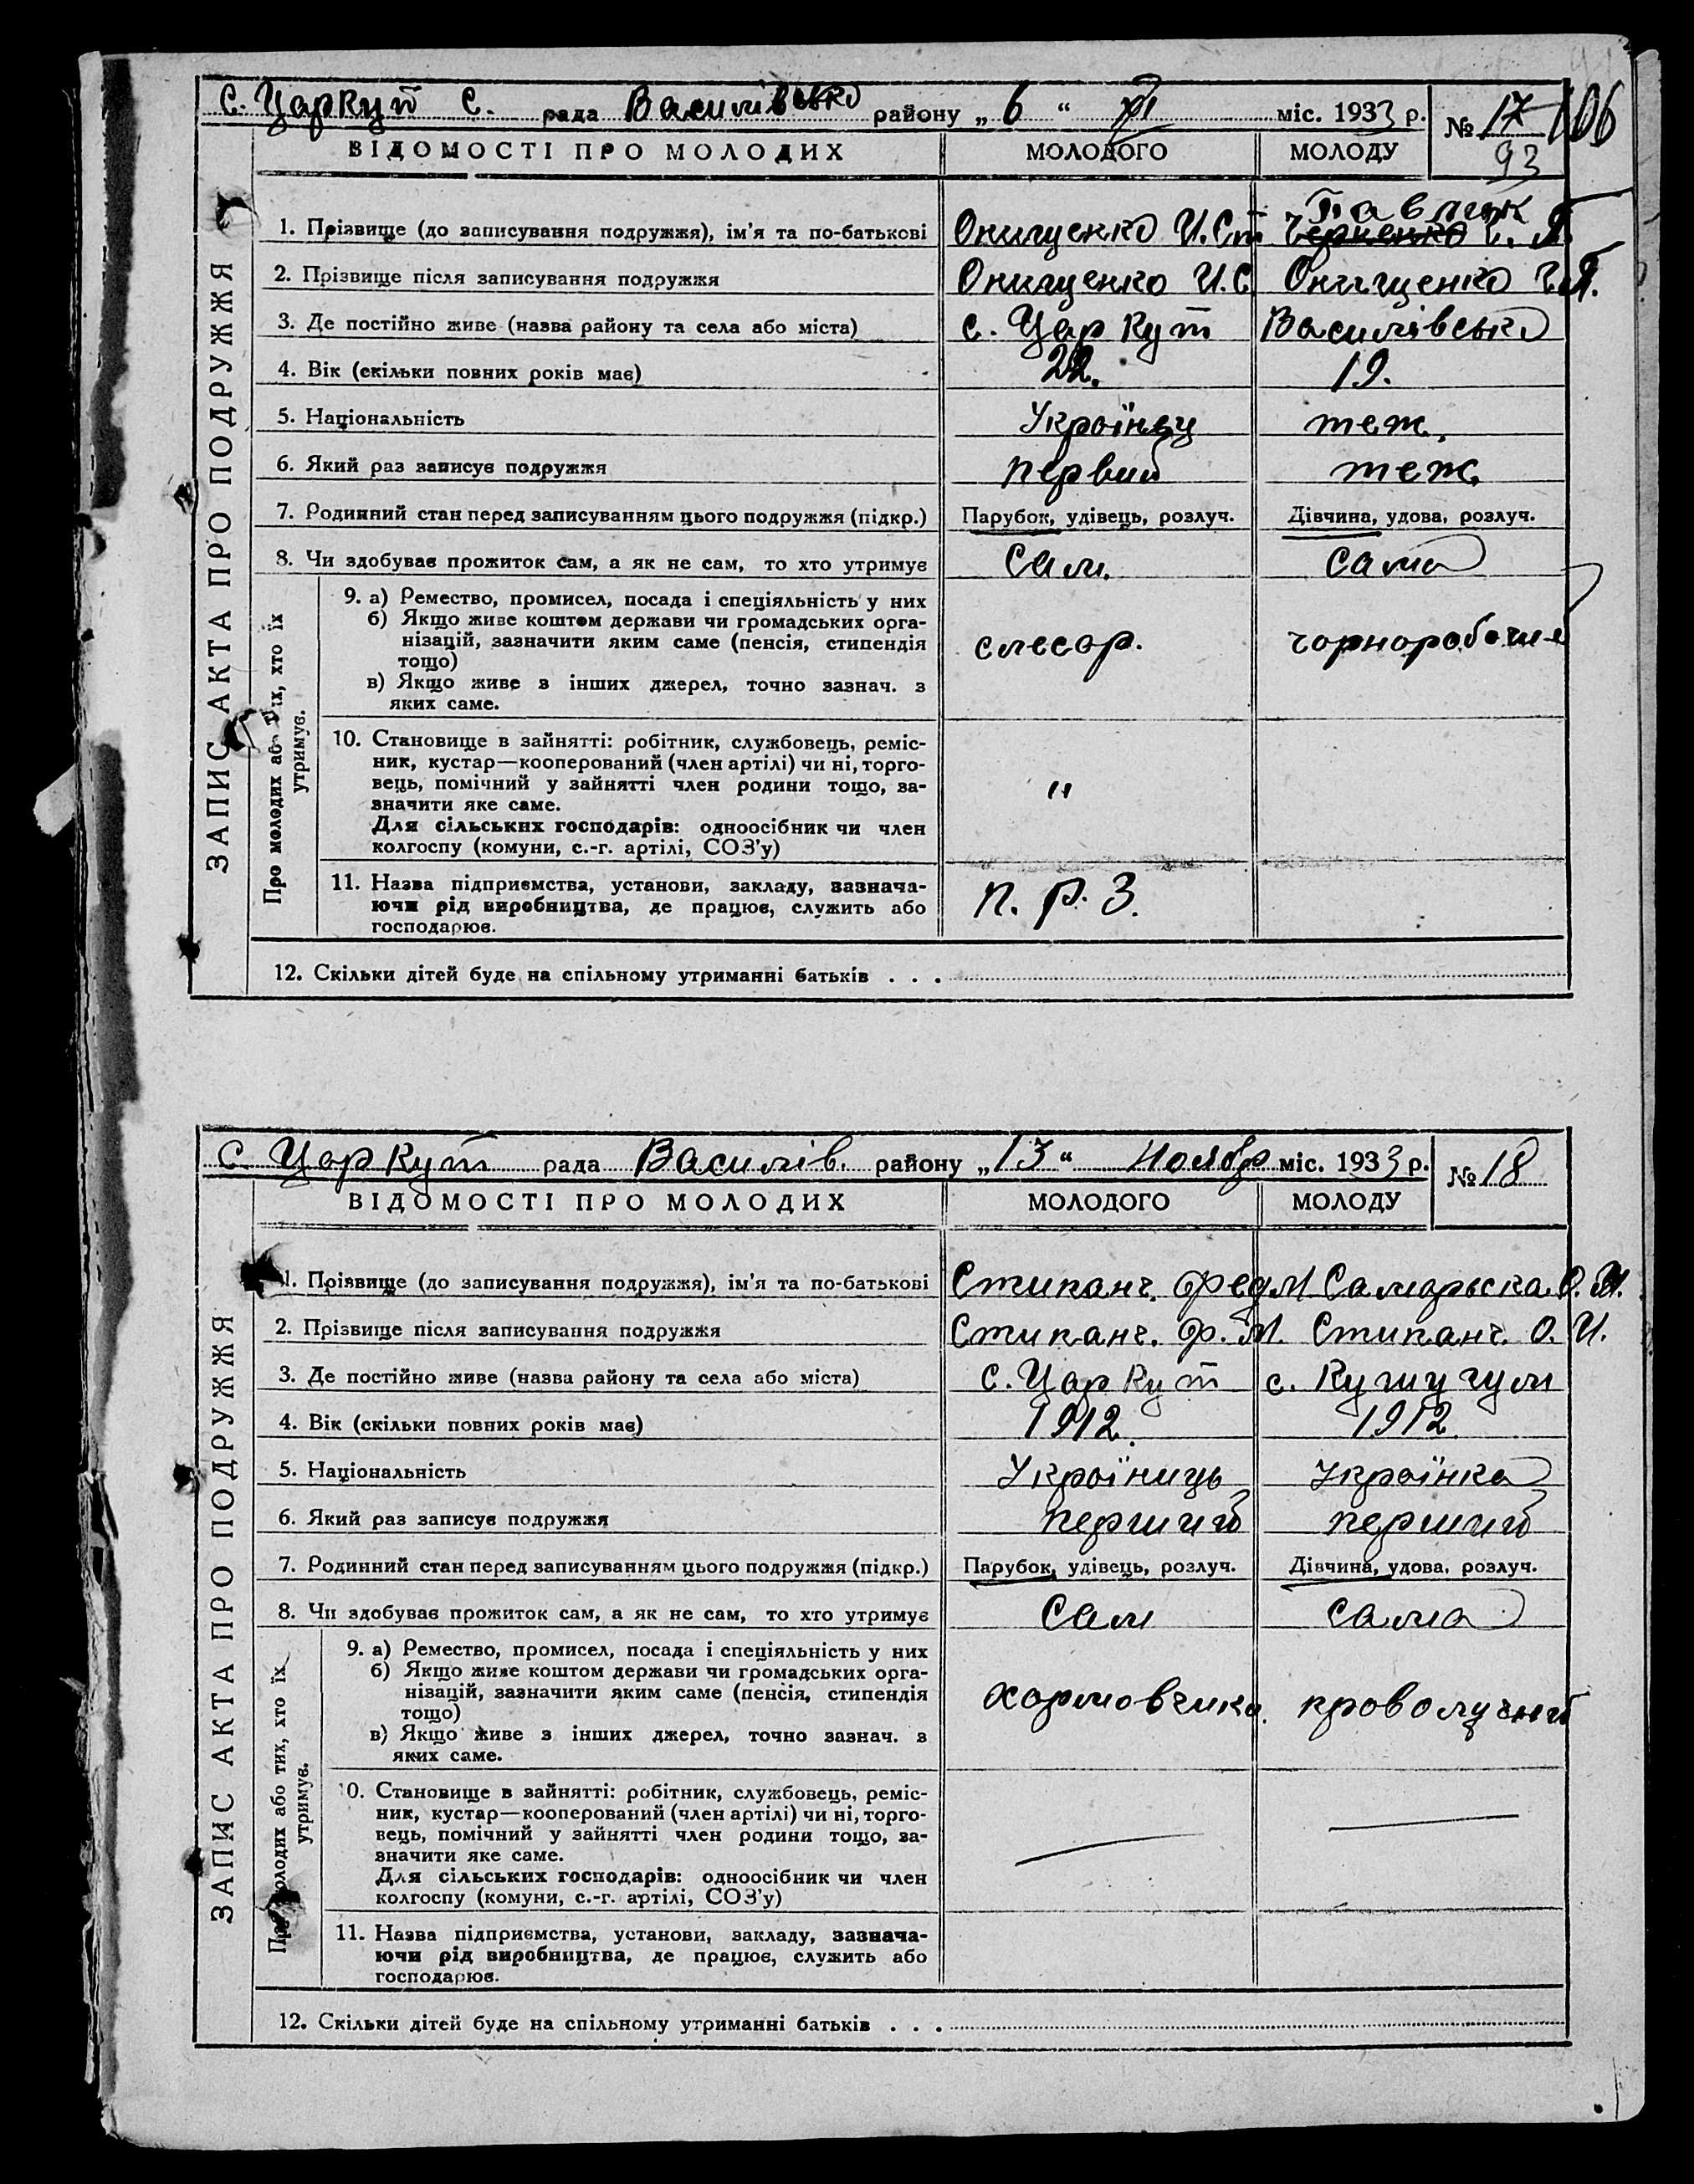 с. Царкут с. рада Василівсько району „ 6 “ XI міс. 1933 р. № 17 106
93
ВІДОМОСТІ ПРО МОЛОДИХ МОЛОДОГО МОЛОДУ
ЗАПИС АКТА ПРО ПОДРУЖЖЯ
Павлик
1. Прізвище (до записування подружжя), ім’я та по-батькові Онищенко И. Ст Черненко Г. П.
2. Прізвище після записування подружжя Онищенко И. С. Онищенко Г. П.
3. Де постійно живе (назва району та села або міста) с. Царкут Василівсько
4. Вік (скільки повних років має) 22. 19.
5. Національність Українец теж.
6. Який раз записує подружжя первий теж.
7. Родинний стан перед записуванням цього подружжя (підкр.) Парубок, удівець, розлуч. Дівчина, удова, розлуч.
8. Чи здобуває прожиток сам, а як не сам, то хто утримує Сам. сама
Про молодих або тих, хто їх утримує.
9. а) Ремество, промисел, посада і спеціяльність у них
б) Якщо живе коштом держави чи громадських орга-
нізацій, зазначити яким саме (пенсія, стипендія
тощо)
в) Якщо живе з інших джерел, точно зазнач. з
яких саме.
слесар. чорноробочий
10. Становище в зайнятті: робітник, службовець, реміс-
ник, кустар—кооперований (член артілі) чи ні, торго-
вець, помічний у зайнятті член родини тощо, за-
значити яке саме.
Для сільських господарів: одноосібник чи член
колгоспу (комуни, с.-г. артілі, СОЗ’у)
"
11. Назва підприємства, установи, закладу, зазнача-
ючи рід виробництва, де працює, служить або
господарює.
П. Р. З.
12. Скільки дітей буде на спільному утриманні батьків . . .
с. Царкут рада Василів. району „ 13 “ Ноябр міс. 1933 р. № 18
ВІДОМОСТІ ПРО МОЛОДИХ МОЛОДОГО МОЛОДУ
ЗАПИС АКТА ПРО ПОДРУЖЖЯ
1. Прізвище (до записування подружжя), ім’я та по-батькові Стипанч. Фед М Самарьска О. И.
2. Прізвище після записування подружжя Стипанч. Ф. М. Стипанч. О. И.
3. Де постійно живе (назва району та села або міста) с. Царкут с. Кушугум
4. Вік (скільки повних років має) 1912. 1912
5. Національність Україниць Українка
6. Який раз записує подружжя перший перший
7. Родинний стан перед записуванням цього подружжя (підкр.) Парубок, удівець, розлуч. Дівчина, удова, розлуч.
8. Чи здобуває прожиток сам, а як не сам, то хто утримує Сам сама
Про молодих або тих, хто їх утримує.
9. а) Ремество, промисел, посада і спеціяльність у них
б) Якщо живе коштом держави чи громадських орга-
нізацій, зазначити яким саме (пенсія, стипендія
тощо)
в) Якщо живе з інших джерел, точно зазнач. з
яких саме.
10. Становище в зайнятті: робітник, службовець, реміс-
ник, кустар—кооперований (член артілі) чи ні, торго-
вець, помічний у зайнятті член родини тощо, за-
значити яке саме.
Для сільських господарів: одноосібник чи член
колгоспу (комуни, с.-г. артілі, СОЗ’у)
11. Назва підприємства, установи, закладу, зазнача-
ючи рід виробництва, де працює, служить або
господарює.
12. Скільки дітей буде на спільному утриманні батьків . . .